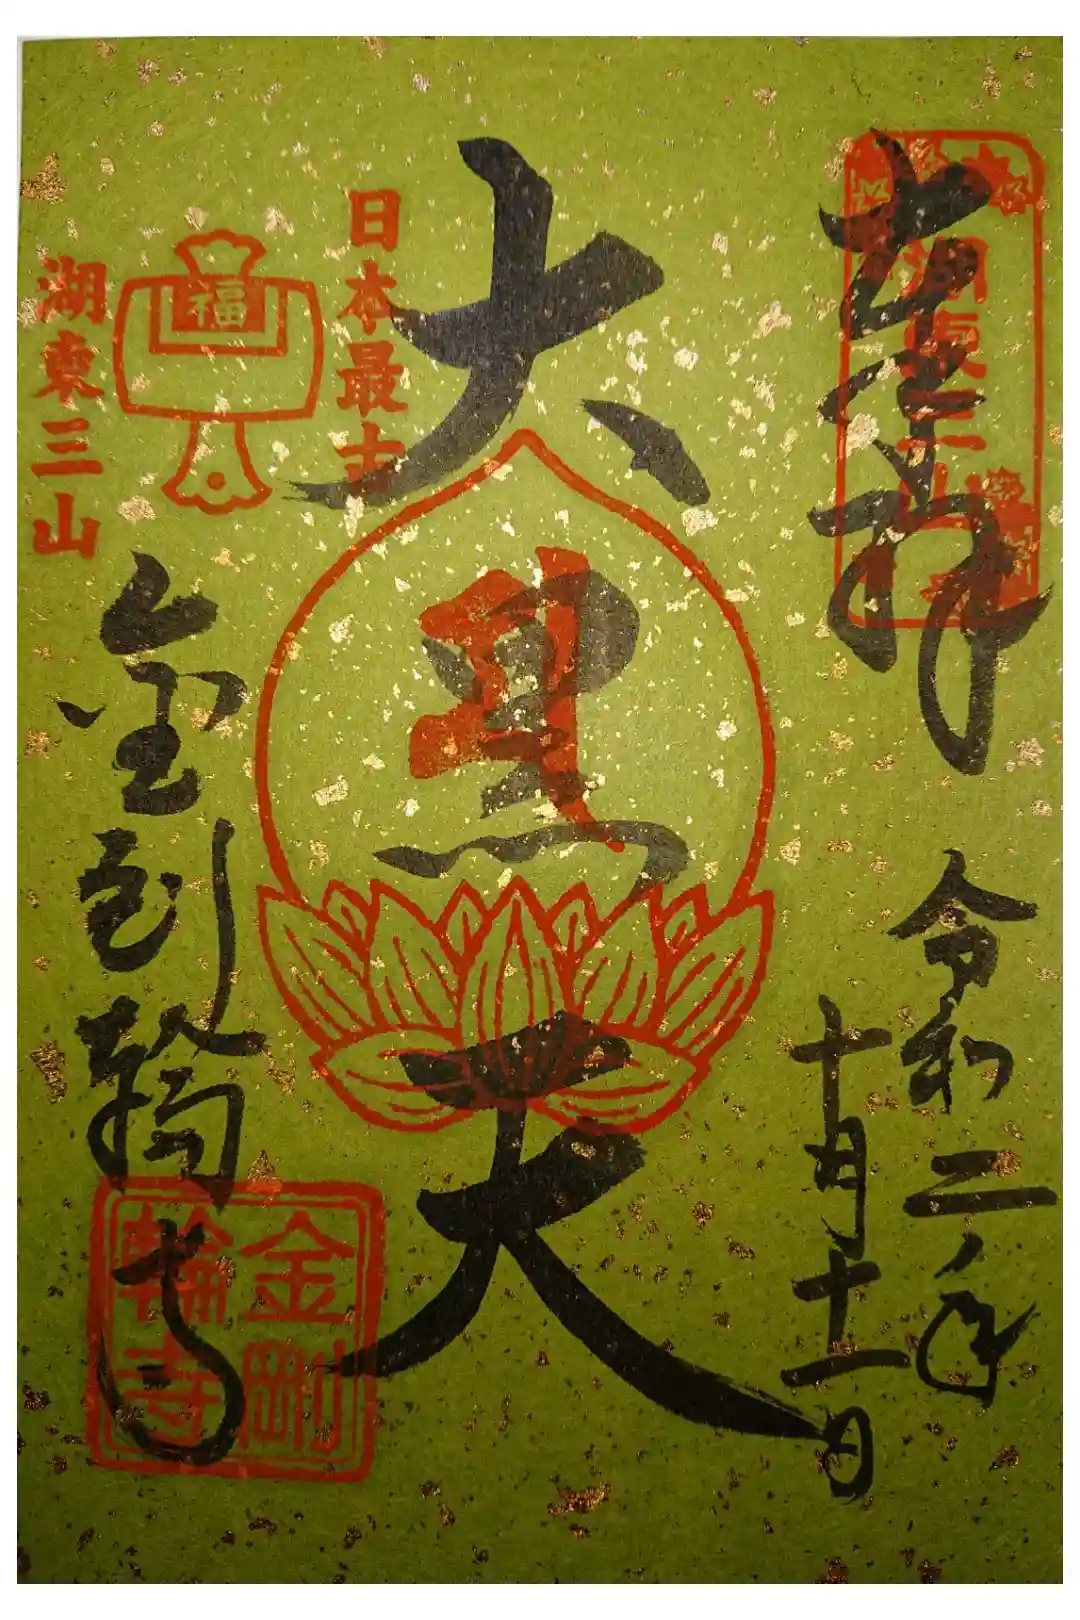 奉拝
湖東三山
令和二年
十月十一日
大黒天
日本最古
福
湖東三山
金剛輪寺
金剛輪寺